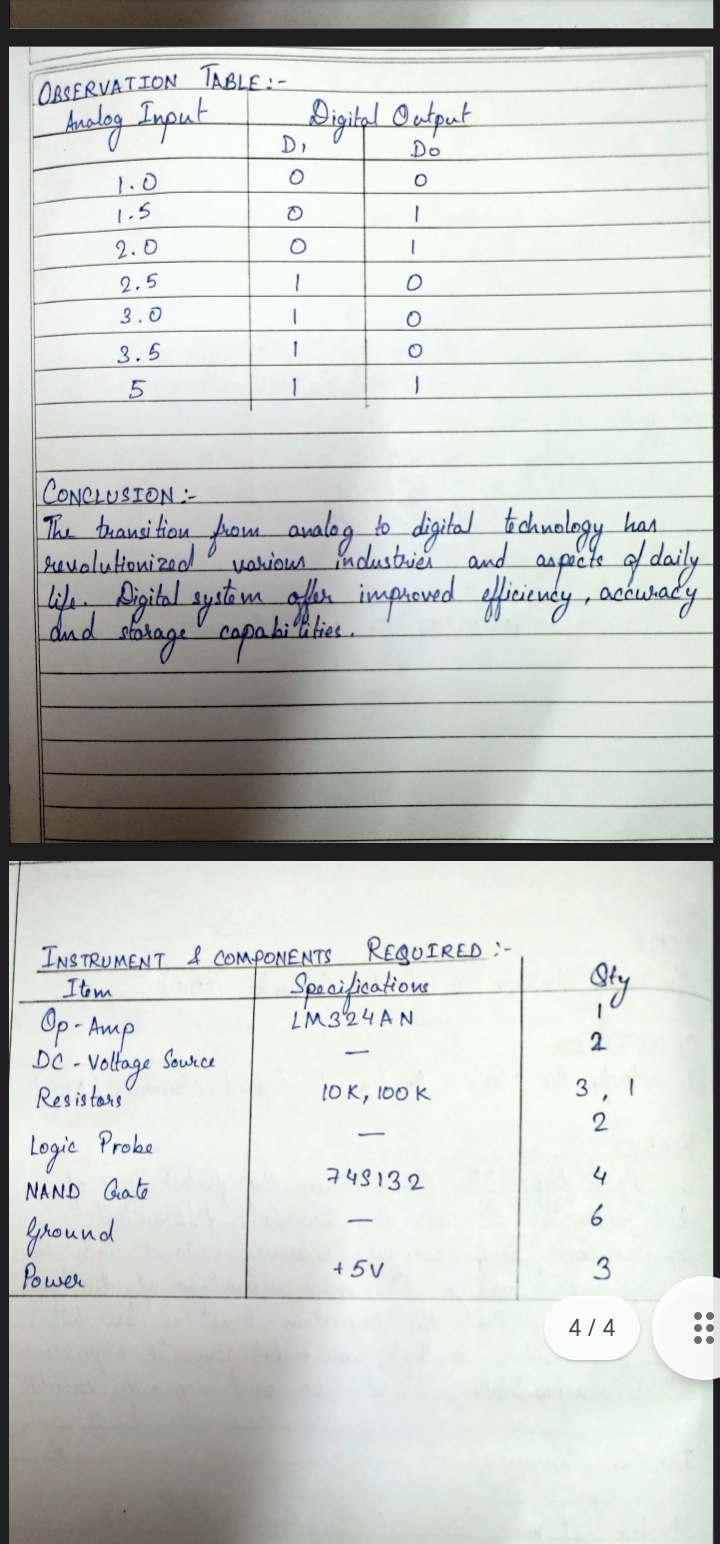 OBSERVATION TABLE:-
Analog Input Digital Output
D1 D0
1.0 0 0
1.5 0 1
2.0 0 1
2.5 1 0
3.0 1 0
3.5 1 0
5 1 1
CONCLUSION:-
The transition from analog to digital technology has
revolutionized various industries and aspects of daily
life. Digital system offer improved efficiency, accuracy
and storage capabilities.
INSTRUMENT & COMPONENTS REQUIRED:-
Item Specifications Qty
Op-Amp LM324AN 1
DC-Voltage Source — 2
Resistors 10K, 100K 3, 1
Logic Probe — 2
NAND Gate 74S132 4
Ground — 6
Power +5V 3
4 / 4